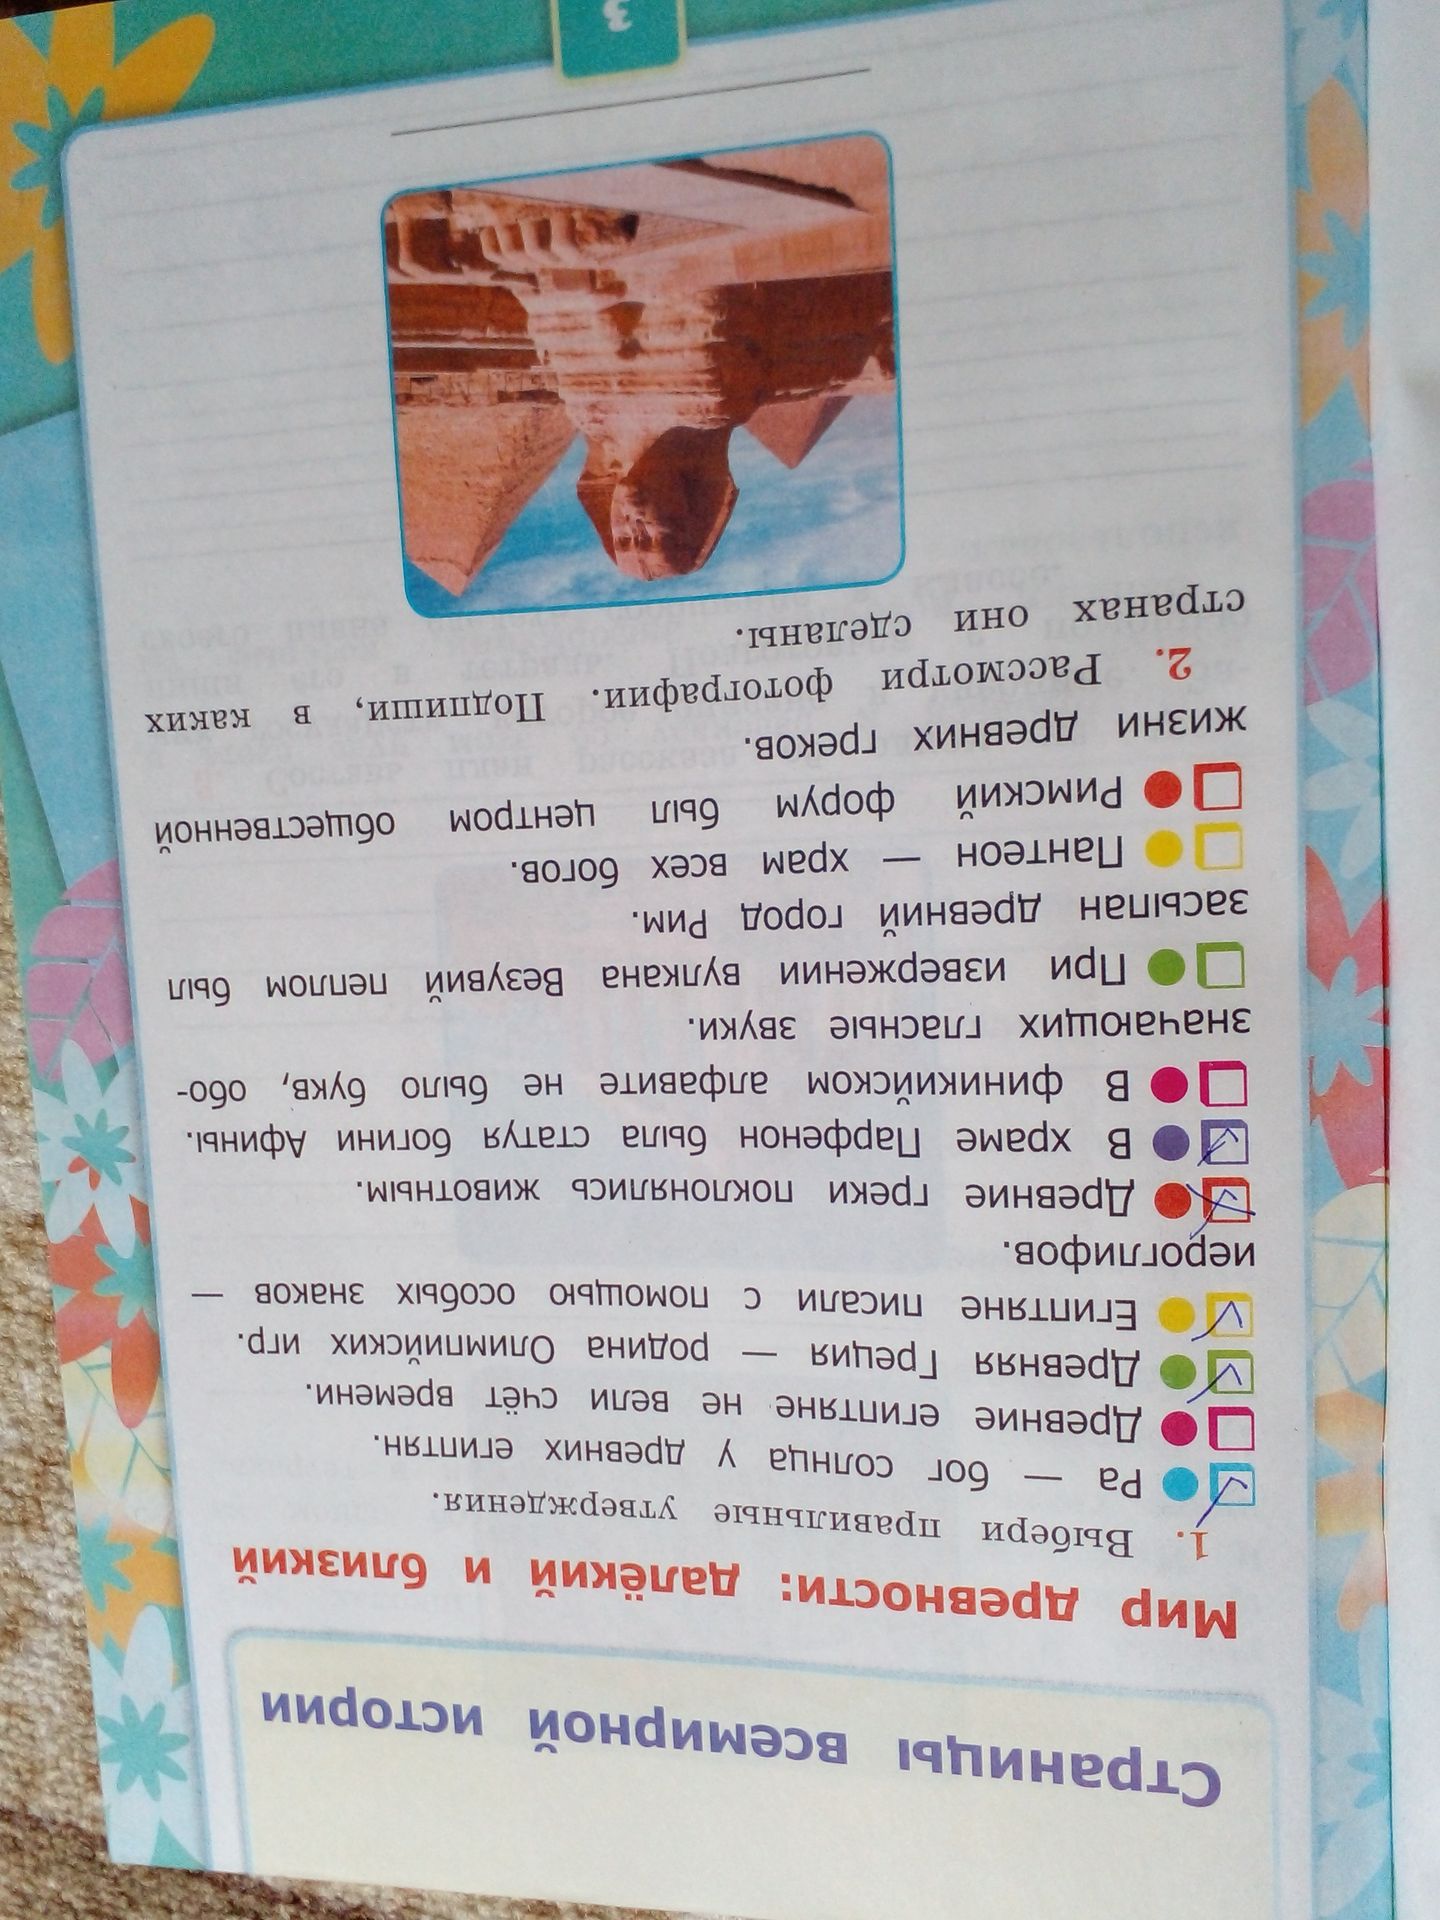 Страницы всемирной истории
Мир древности: далёкий и близкий
1. Выбери правильные утверждения.
Ра — бог солнца у древних египтян.
Древние египтяне не вели счёт времени.
Древняя Греция — родина Олимпийских игр.
Египтяне писали с помощью особых знаков —
иероглифов.
Древние греки поклонялись животным.
В храме Парфенон была статуя богини Афины.
В финикийском алфавите не было букв, обо-
значающих гласные звуки.
При извержении вулкана Везувий пеплом был
засыпан древний город Рим.
Пантеон — храм всех богов.
Римский форум был центром общественной
жизни древних греков.
2. Рассмотри фотографии. Подпиши, в каких
странах они сделаны.
3